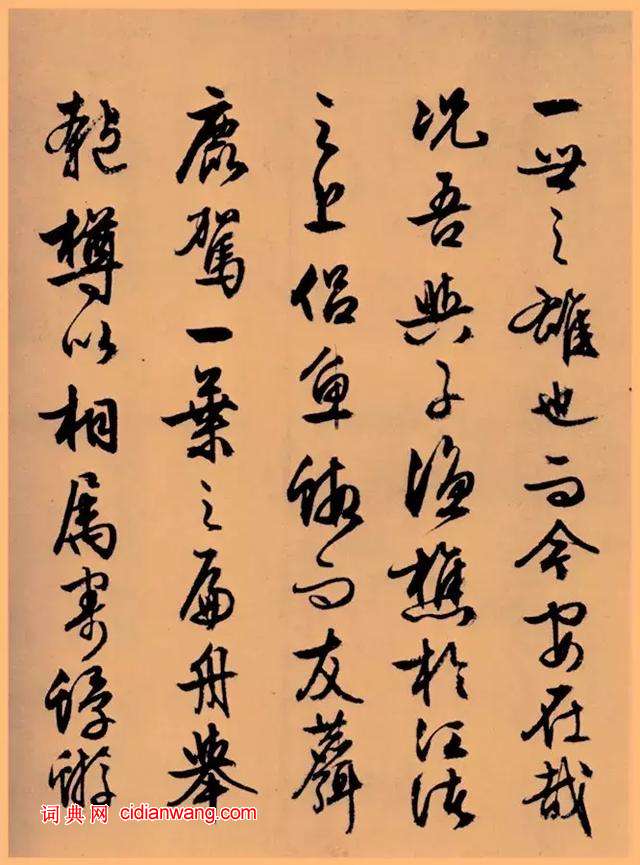 一世之雄也而今安在哉
况吾與子漁樵於江渚
之上侣魚蝦而友麋
鹿駕一葉之扁舟舉
匏樽以相属寄蜉蝣
词典网 cidianwang.com